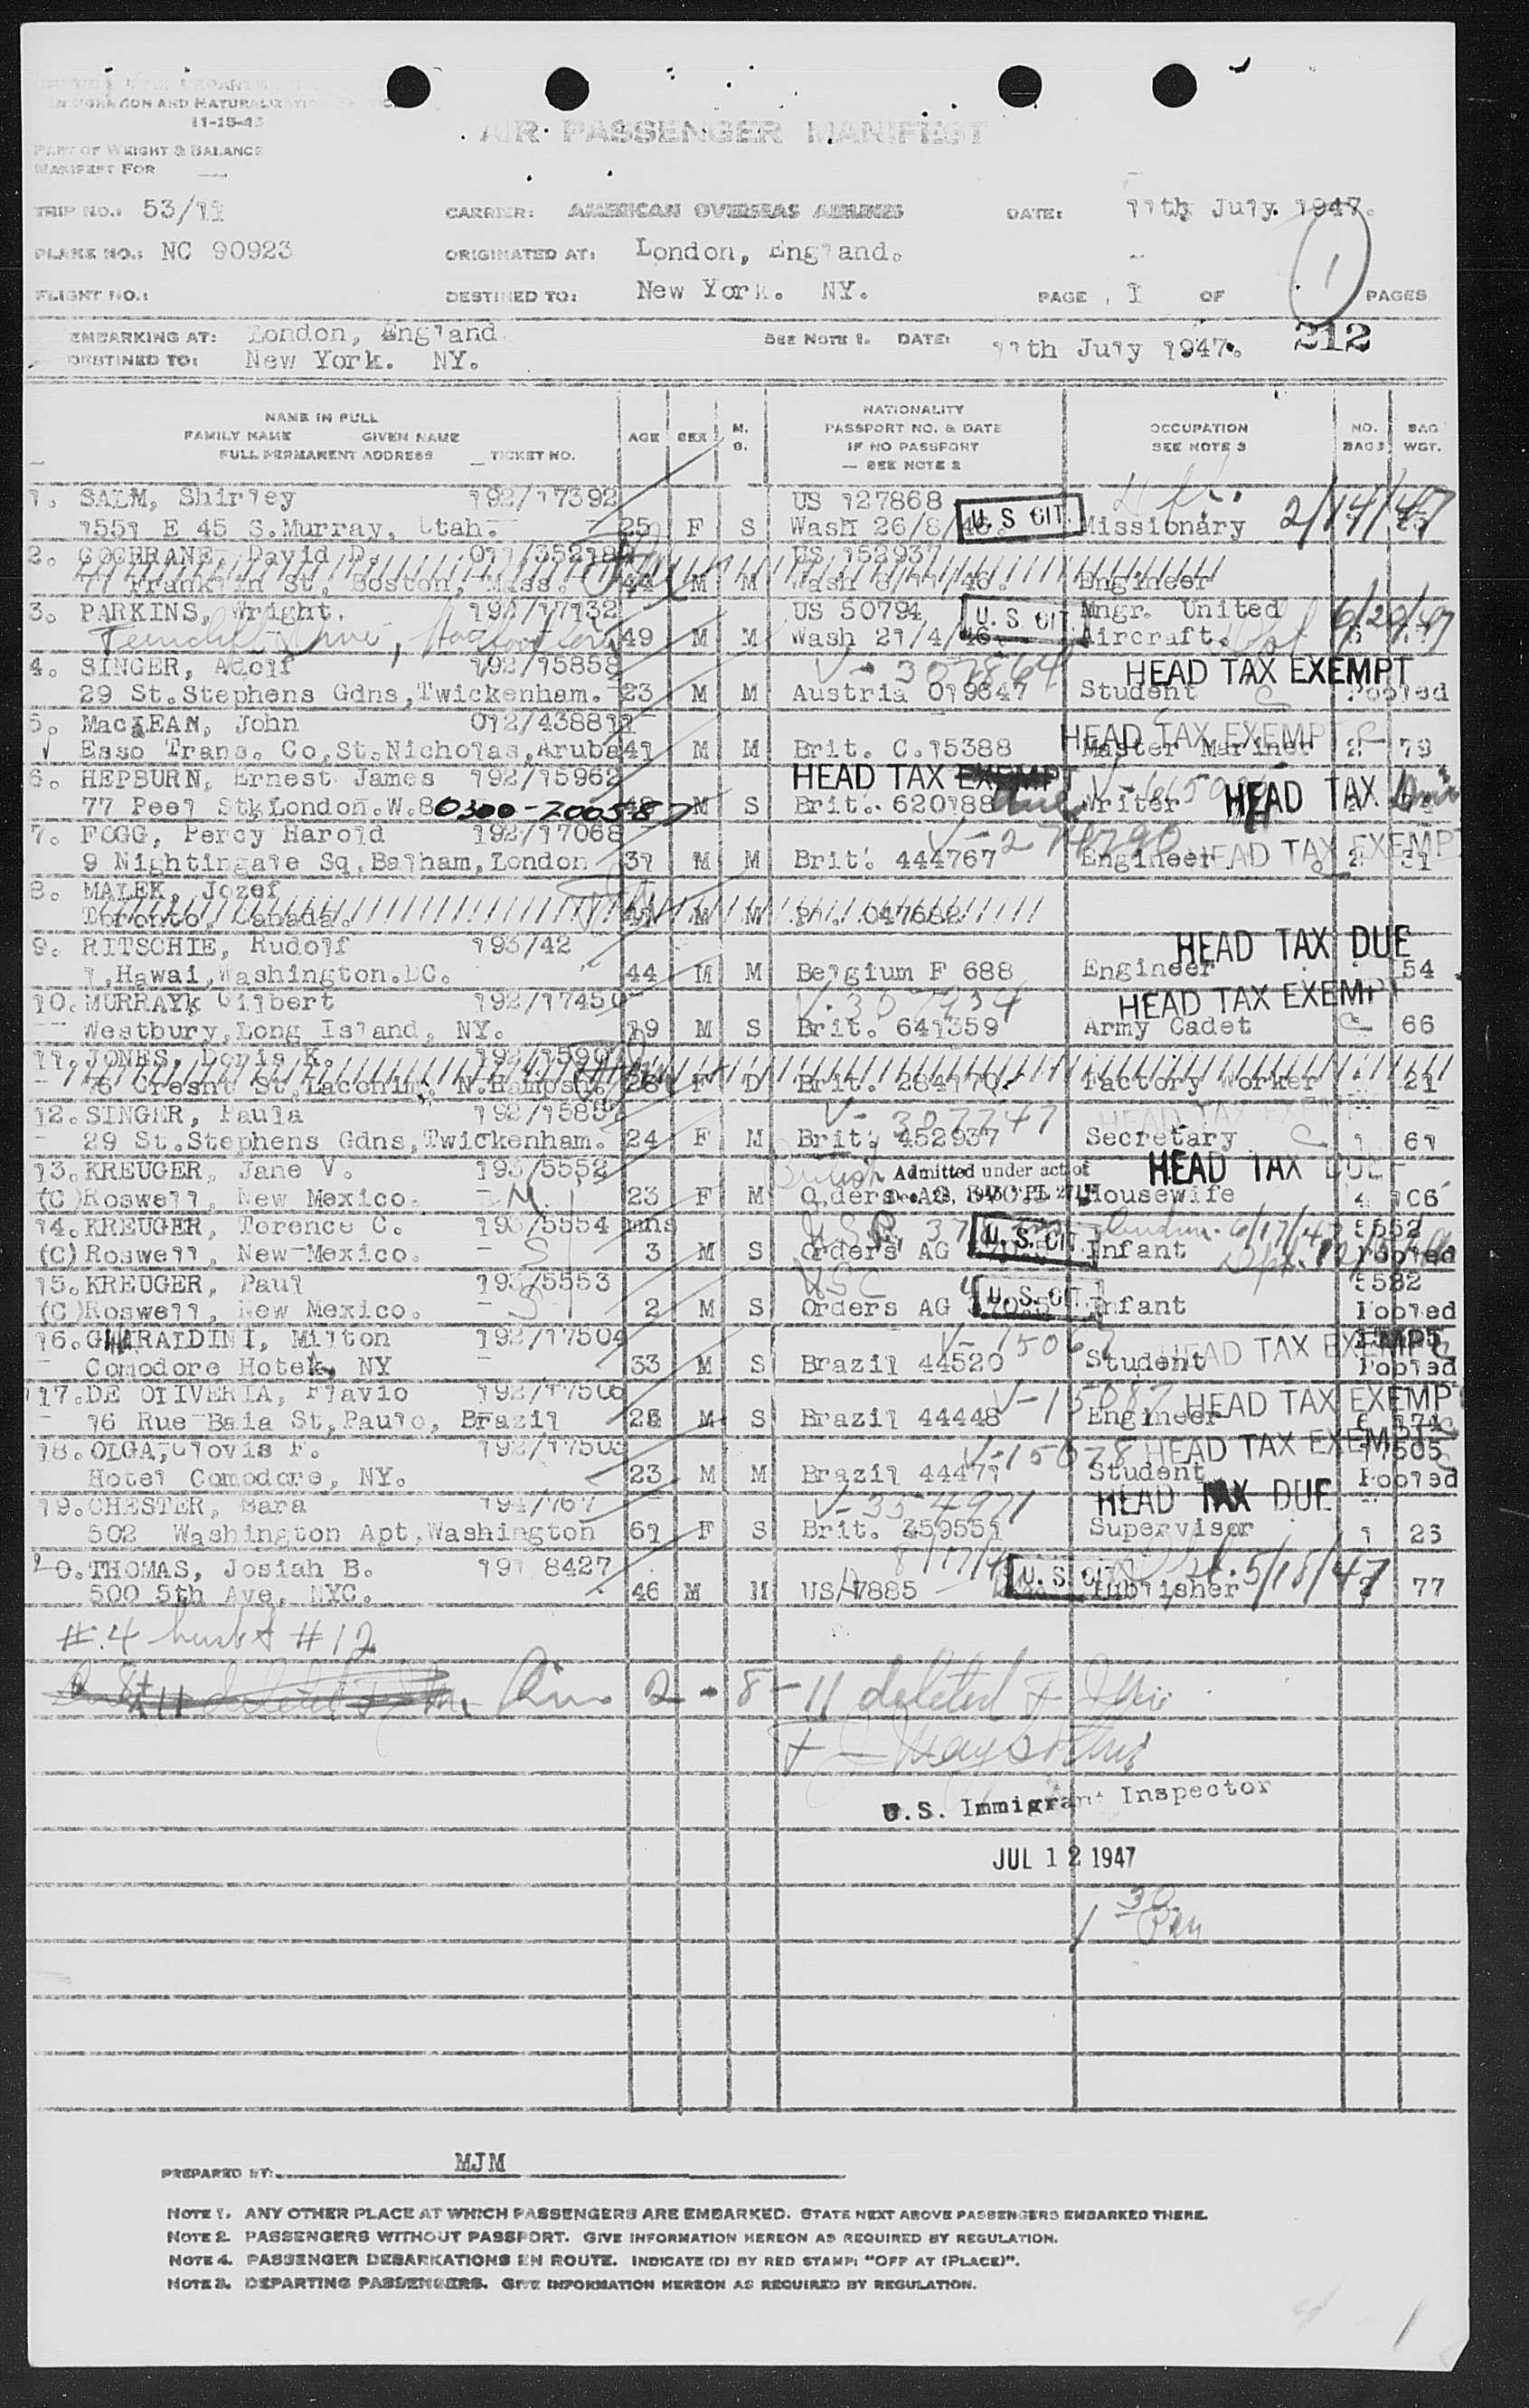 IMMIGRATION AND NATURALIZATION SERVICE
11-15-45
AIR PASSENGER MANIFEST
PART OF WEIGHT & BALANCE
MANIFEST FOR
TRIP NO.: 53/11 CARRIER: AMERICAN OVERSEAS AIRLINES DATE: 11th July. 1947.
PLANE NO.: NC 90923 ORIGINATED AT: London, England.
FLIGHT NO.: DESTINED TO: New York. NY. PAGE 1 OF 1 PAGES
EMBARKING AT: London, England. SEE NOTE 1. DATE: 11th July 1947. 212
DESTINED TO: New York. NY.
NAME IN FULL
FAMILY NAME GIVEN NAME
FULL PERMANENT ADDRESS TICKET NO.
AGE SEX M. S.
NATIONALITY
PASSPORT NO. & DATE
IF NO PASSPORT
— SEE NOTE 2
OCCUPATION
SEE NOTE 3
NO. BAGS
BAG WGT.
1. SALM, Shirley 192/17392 US 127868
1551 E 45 S.Murray, Utah. 25 F S Wash 26/8/46. U.S CIT. Missionary 2/14/47
2. COCHRANE, David D. 011/352180 US 152937
77 Franklin St, Boston, Mass. 44 M M Wash 8/11/46. Engineer
3. PARKINS, Wright. 191/17132 US 50794 Mngr. United
49 M M Wash 21/4/46 U.S. CIT. Aircraft. 6/20/47
4. SINGER, Adolf 192/15858 V-307864 HEAD TAX EXEMPT
29 St.Stephens Gdns,Twickenham. 23 M M Austria 019647 Student Pooled
5. MacLEAN, John 012/438811 HEAD TAX EXEMPT
Esso Trans. Co,St.Nicholas,Aruba 41 M M Brit. C.15388 Master Mariner 2 79
6. HEPBURN, Ernest James 192/15962 HEAD TAX EXEMPT
77 Peel St,London.W.8 0300-200587 M S Brit. 620188 Writer HEAD TAX
7. FOGG, Percy Harold 192/17068 V-274290
9 Nightingale Sq,Balham,London 31 M M Brit. 444767 Engineer HEAD TAX EXEMPT 2 31
8. MALEK, Jozef
Toronto, Canada. 41 M M 047682
9. RITSCHIE, Rudolf 193/42 HEAD TAX DUE
1,Hawai,Washington.DC. 44 M M Belgium F 688 Engineer 54
10. MURRAYk Gilbert 192/17450 V-307934 HEAD TAX EXEMPT
Westbury,Long Island, NY. 19 M S Brit. 641359 Army Cadet 66
11. JONES, Doris K.
76 Cresnt St,Laconim, N.Hampsh. 28 F D Brit. 284170. Factory Worker 21
12. SINGER, Paula 192/15857 V-307747 HEAD TAX EXEMPT
29 St.Stephens Gdns,Twickenham. 24 F M Brit. 452937 Secretary 1 61
13. KREUGER, Jane V. 193/5552 British Admitted under act of HEAD TAX DUE
(C) Roswell, New Mexico. 23 F M Orders AG Housewife 4 106
14. KREUGER, Terence C. 193/5554 mns 6/17/47 5552
(C) Roswell, New Mexico. 3 M S Orders AG U.S. CIT. Infant Pooled
15. KREUGER, Paul 193/5553 USC 5582
(C) Roswell, New Mexico. 2 M S Orders AG U.S. CIT. Infant Pooled
16. GHIRALDINI, Milton 192/17504 HEAD TAX EXEMPT
Comodore Hotel, NY 33 M S Brazil 44520 Student Pooled
17. DE OLIVERIA, Flavio 192/17506 V-15087 HEAD TAX EXEMPT
16 Rue Baia St,Paulo, Brazil 28 M S Brazil 44448 Engineer
18. OLGA, Clovis F. V-15078 HEAD TAX EXEMPT 17505
Hotel Comodore, NY. 23 M M Brazil 44471 Student Pooled
19. CHESTER, Sara 191/767 V-354971 HEAD TAX DUE
502 Washington Apt,Washington 61 F S Brit. 259551 Supervisor 1 26
20. THOMAS, Josiah B. 191 8427
500 5th Ave, NYC. 46 M M US/17885 U.S. CIT. Publisher 5/18/47 77
#4 husb of #12
2 - 8 - 11 deleted
U.S. Immigrant Inspector
JUL 12 1947
1 30
PREPARED BY: MJM
NOTE 1. ANY OTHER PLACE AT WHICH PASSENGERS ARE EMBARKED. STATE NEXT ABOVE PASSENGERS EMBARKED THERE.
NOTE 2. PASSENGERS WITHOUT PASSPORT. GIVE INFORMATION HEREON AS REQUIRED BY REGULATION.
NOTE 4. PASSENGER DEBARKATIONS EN ROUTE. INDICATE (D) BY RED STAMP: "OFF AT (PLACE)".
NOTE 3. DEPARTING PASSENGERS. GIVE INFORMATION HEREON AS REQUIRED BY REGULATION.